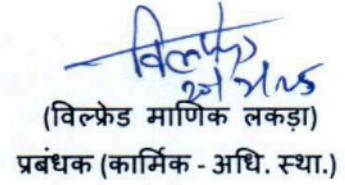 विल्फ्रेड
(विल्फ्रेड माणिक लकड़ा)
प्रबंधक (कार्मिक - अधि. स्था.)